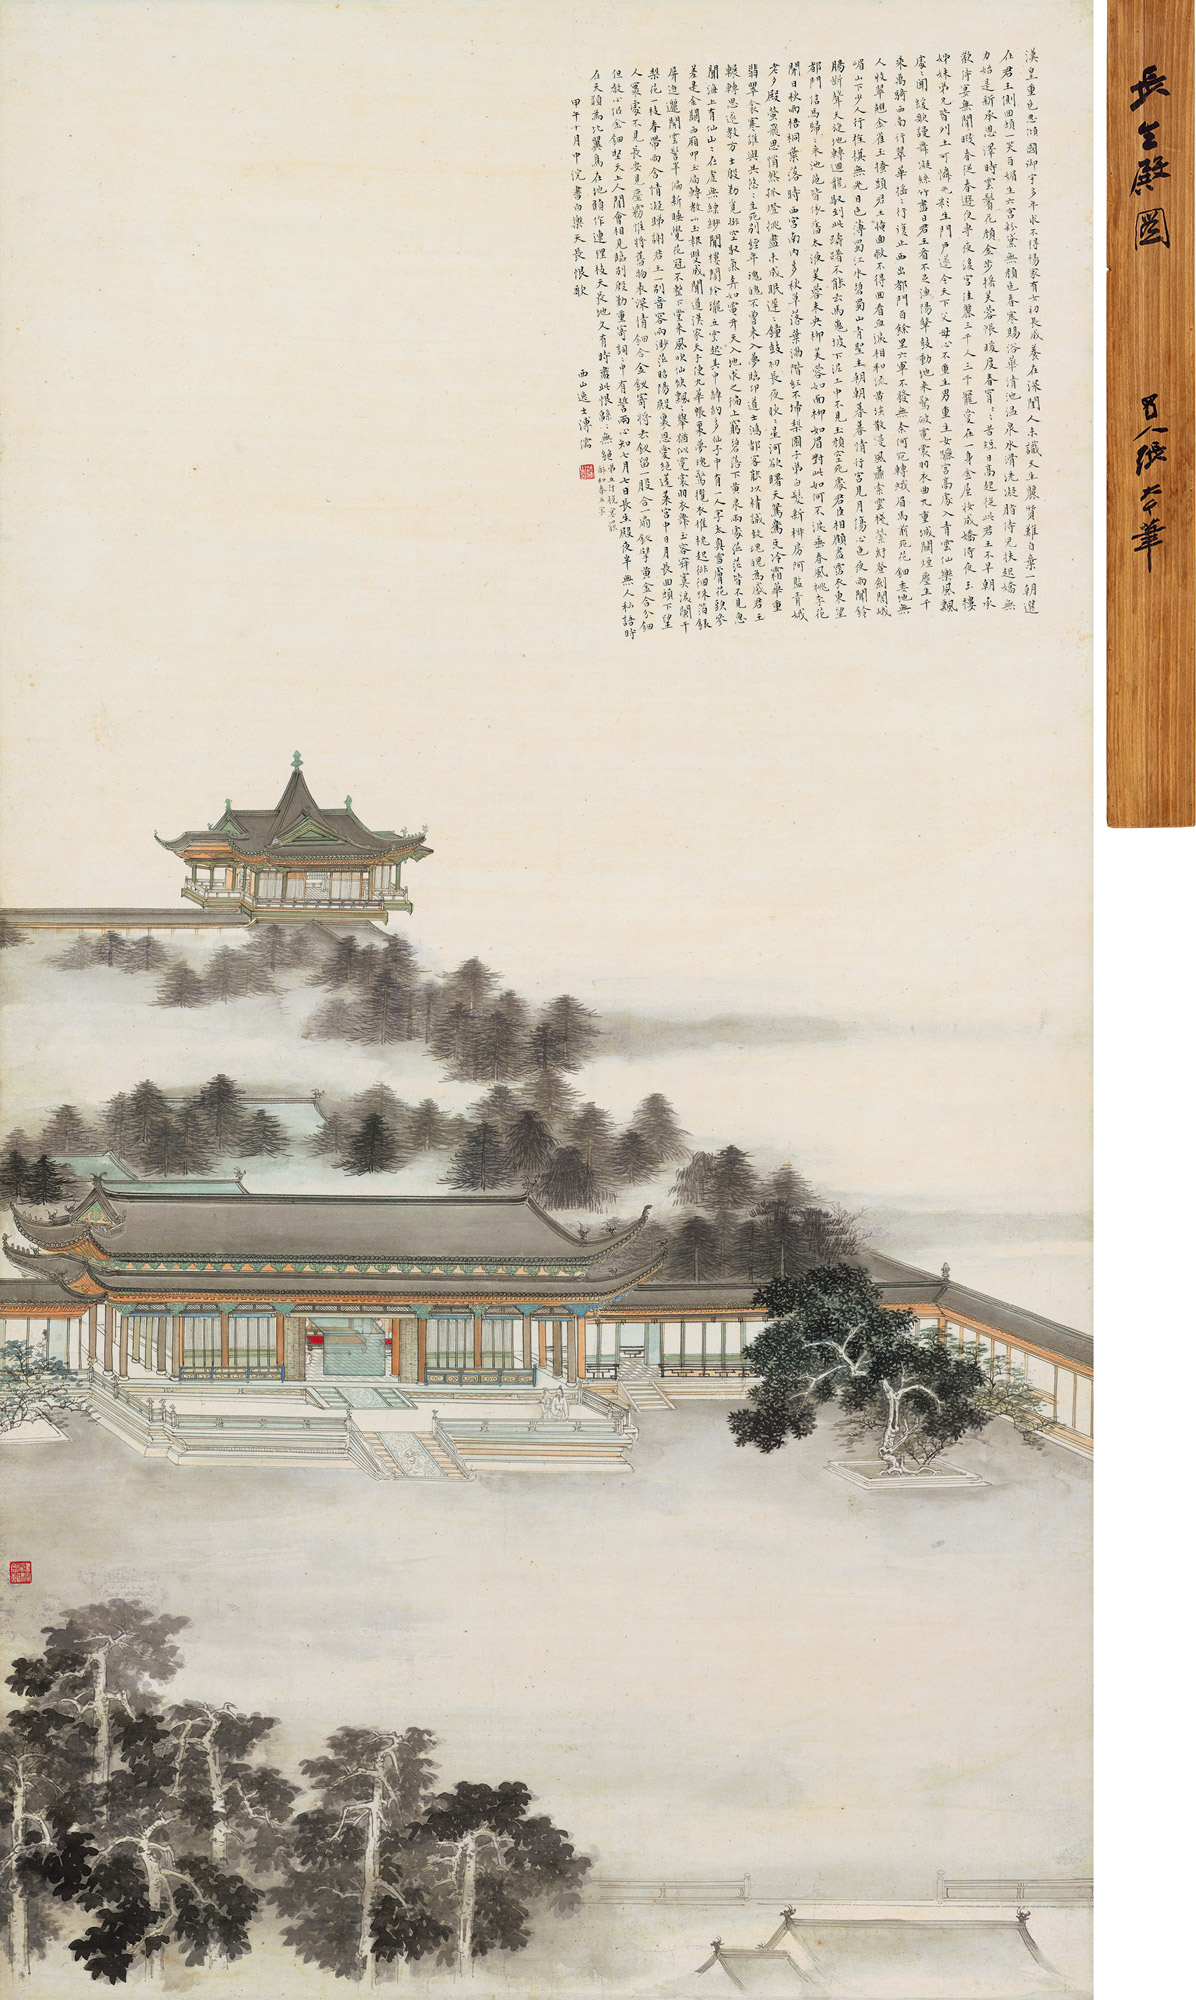 漢皇重色思傾國御宇多年求不得楊家有女初長成養在深閨人未識天生麗質難自棄一朝選
在君王側回頭一笑百媚生六宮粉黛無顏色春寒賜浴華清池溫泉水滑洗凝脂侍兒扶起嬌無
力始是新承恩澤時雲鬢花顏金步搖芙蓉帳暖度春宵〻苦短日高起從此君王不早朝承
歡侍宴無閒暇春從春遊夜專夜後宮佳麗三千人三千寵愛在一身金屋妝成嬌侍夜玉樓
姊妹弟兄皆列土可憐光彩生門戶遂令天下父母心不重生男重生女驪宮高處入青雲仙樂風飄
處〻聞緩歌謾舞凝絲竹盡日君王看不足漁陽鼙鼓動地來驚破霓裳羽衣曲九重城闕煙塵生千
乘萬騎西南行翠華搖〻行復止西出都門百餘里六軍不發無奈何宛轉蛾眉馬前死花鈿委地無
人收翠翹金雀玉搔頭君王掩面救不得回看血淚相和流黃埃散漫風蕭索雲棧縈紆登劍閣峨
嵋山下少人行旌旗無光日色薄蜀江水碧蜀山青聖主朝朝暮暮情行宮見月傷心色夜雨聞鈴
腸斷聲天旋地轉迴龍馭到此躊躇不能去馬嵬坡下泥土中不見玉顏空死處君臣相顧盡霑衣東望
都門信馬歸〻來池苑皆依舊太液芙蓉未央柳芙蓉如面柳如眉對此如何不淚垂春風桃李花
開日秋雨梧桐葉落時西宮南內多秋草落葉滿階紅不掃梨園子弟白髮新椒房阿監青娥
老夕殿螢飛思悄然孤燈挑盡未成眠遲〻鐘鼓初長夜耿〻星河欲曙天鴛鴦瓦冷霜華重
翡翠衾寒誰與共悠〻生死別經年魂魄不曾來入夢臨邛道士鴻都客能以精誠致魂魄為感君王
輾轉思遂教方士殷勤覓排空馭氣奔如電升天入地求之遍上窮碧落下黃泉兩處茫茫皆不見忽
聞海上有仙山〻在虛無縹緲間樓閣玲瓏五雲起其中綽約多仙子中有一人字太真雪膚花貌參
差是金闕西廂叩玉扃轉教小玉報雙成聞道漢家天子使九華帳裏夢魂驚攬衣推枕起徘徊珠箔銀
屏迤邐開雲鬢半偏新睡覺花冠不整下堂來風吹仙袂飄〻舉猶似霓裳羽衣舞玉容寂寞淚闌干
梨花一枝春帶雨含情凝睇謝君王一別音容兩渺茫昭陽殿裏恩愛絕蓬萊宮中日月長回頭下望
人寰處不見長安見塵霧惟將舊物表深情鈿合金釵寄將去釵留一股合一扇釵擘黃金合分鈿
但教心似金鈿堅天上人間會相見臨別殷勤重寄詞〻中有誓兩心知七月七日長生殿夜半無人私語時
在天願為比翼鳥在地願作連理枝天長地久有時盡此恨綿〻無絕
第五行
醉和春
甲午十月中浣書白樂天長恨歌 西山逸士溥儒
長生殿圖 蜀人張大千筆